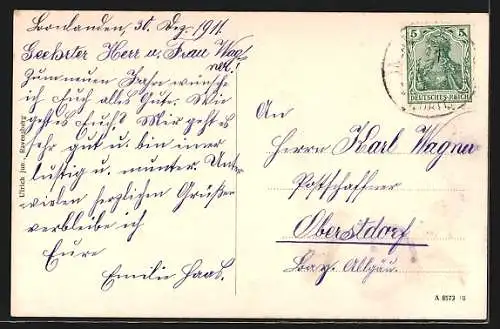 Bonlanden, 30. Dez. 1911.
Geehrter Herr u. Frau Wag-
ner!
Zum neuen Jahr wünsche
ich Euch alles Gute. Wie
geht es Euch? Mir geht es
sehr gut u. bin immer
lustig u. munter. Unter
vielen herzlichen Grüßen
verbleibe ich
Eure
Emilie Haas.
Ulrich jun., Ravensburg
5 5
DEUTSCHES REICH
An
Herrn Karl Wagner
Postschaffner
Oberstdorf
Bay. Allgäu.
A 8573